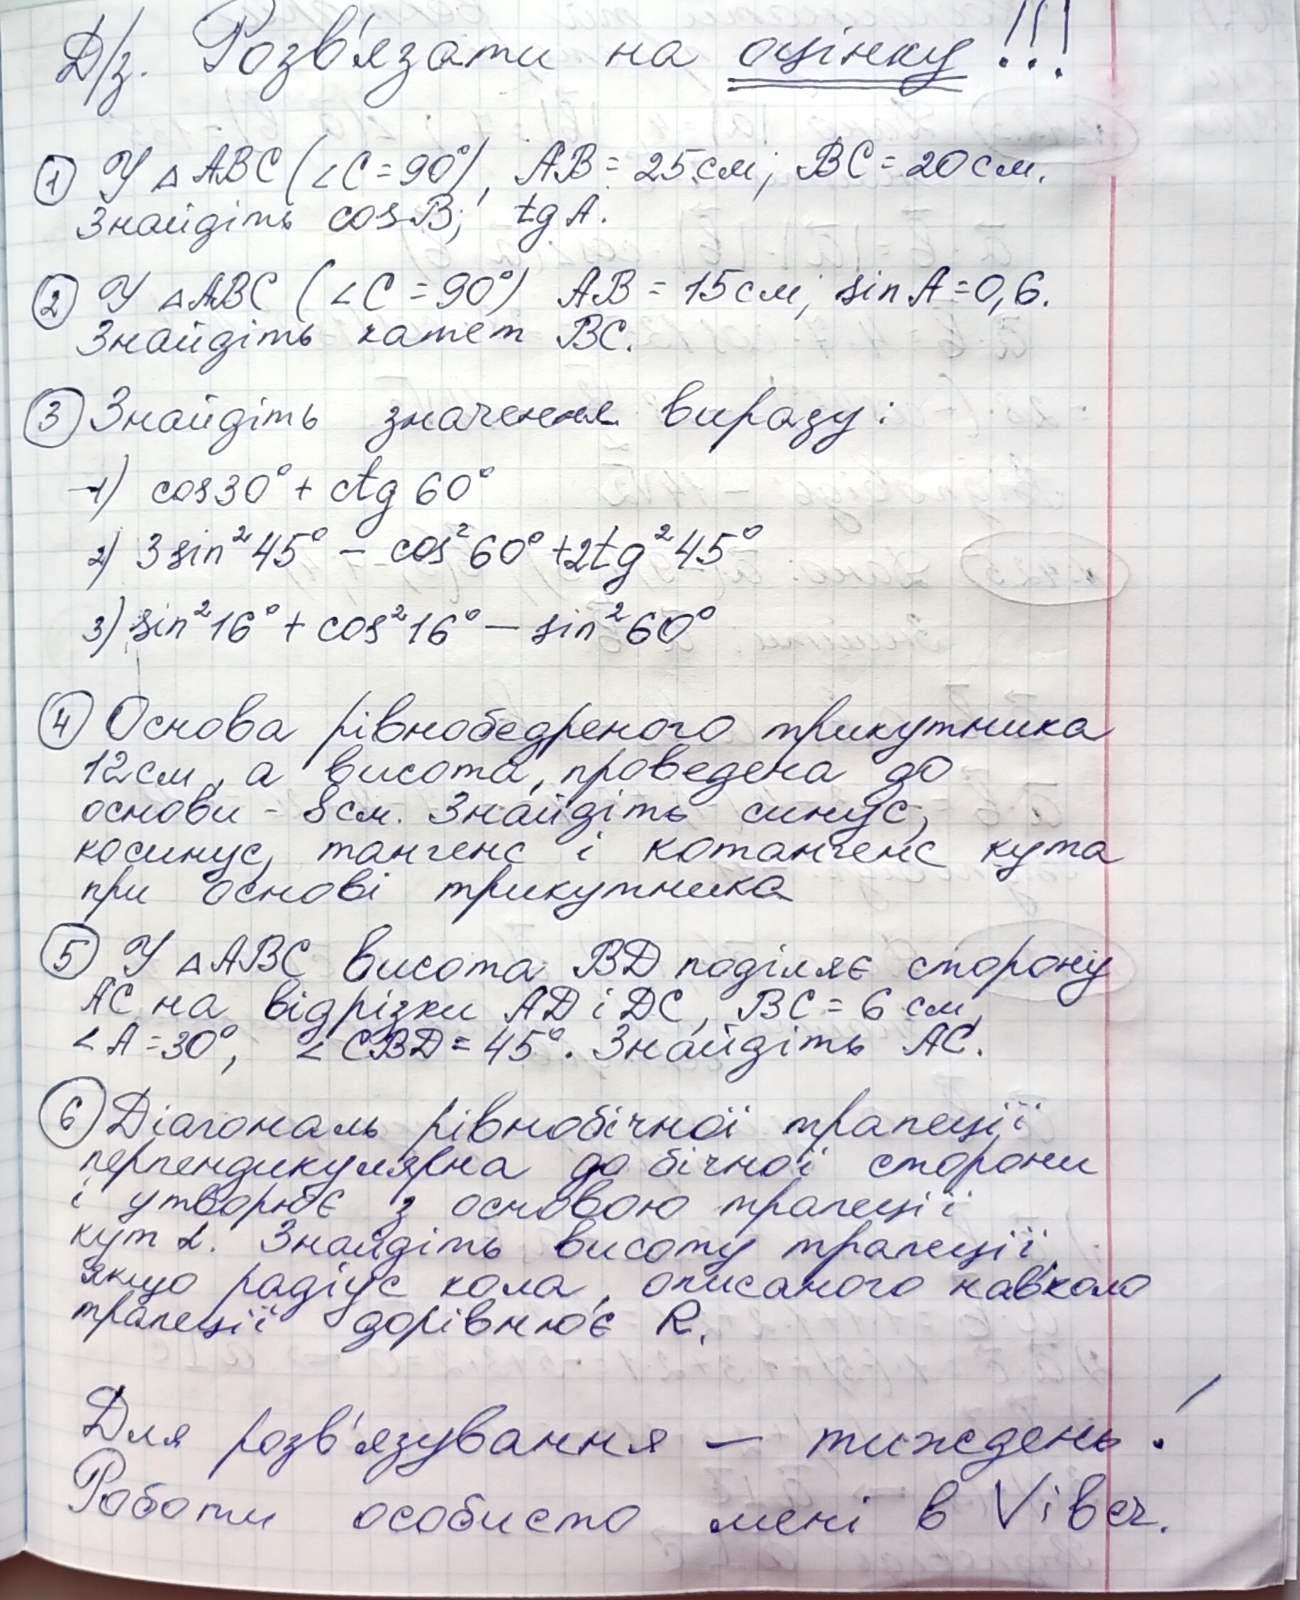 Д/з. Розв'язати на оцінку!!!
① У △ABC (∠C=90°), AB = 25 см; BC = 20 см.
Знайдіть cosB; tgA.
② У △ABC (∠C = 90°) AB = 15 см; sinA = 0,6.
Знайдіть катет BC.
③ Знайдіть значення виразу:
1) cos30° + ctg60°
2) 3sin²45° – cos²60° + 2tg²45°
3) sin²16° + cos²16° – sin²60°
④ Основа рівнобедреного трикутника
12 см, а висота, проведена до
основи – 8 см. Знайдіть синус,
косинус, тангенс і котангенс кута
при основі трикутника
⑤ У △ABC висота BD поділяє сторону
AC на відрізки AD і DC, BC = 6 см,
∠A = 30°, ∠CBD = 45°. Знайдіть AC.
⑥ Діагональ рівнобічної трапеції
перпендикулярна до бічної сторони
і утворює з основою трапеції
кут α. Знайдіть висоту трапеції,
якщо радіус кола, описаного навколо
трапеції дорівнює R.
Для розв'язування – тиждень!
Роботи особисто мені в Viber.